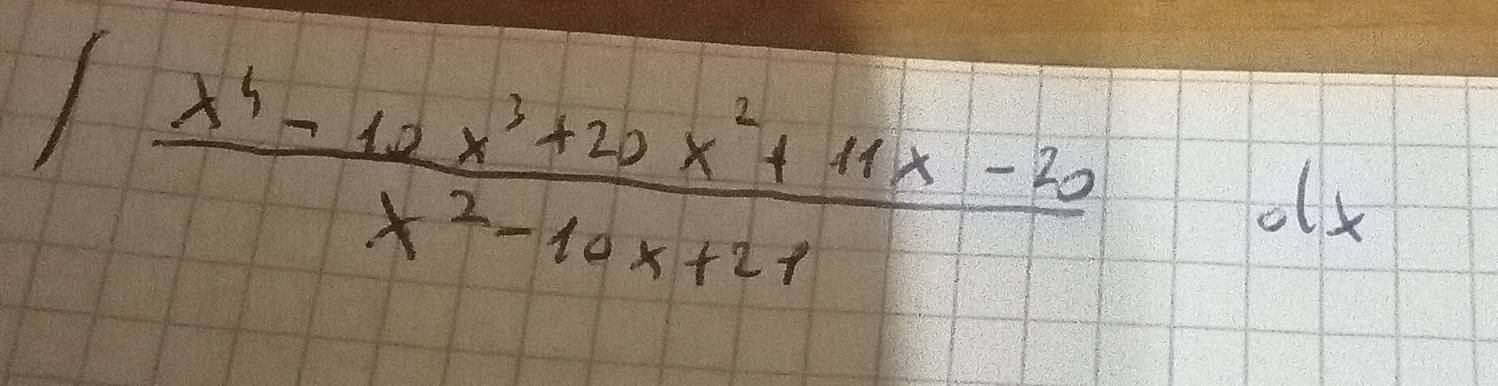 ∫ (x⁴ - 10x³ + 20x² + 11x - 20) / (x² - 10x + 21) dx